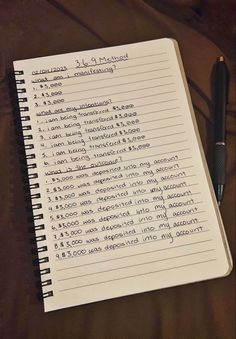 02/08/2023 369 Method
what am i manifesting?
1. $3,000
2. $3,000
3. $3,000
what are my intentions?
1. i am being transferd $3,000
2. i am being transferd $3,000
3. i am being transferd $3,000
4. i am being transferd $3,000
5. i am being transferd $3,000
6. i am being transferd $3,000
what is the outcome?
1. $3,000 was deposited into my account
2. $3,000 was deposited into my account
3. $3,000 was deposited into my account
4. $3,000 was deposited into my account
5. $3,000 was deposited into my account
6. $3,000 was deposited into my account
7. $3,000 was deposited into my account
8. $3,000 was deposited into my account
9. $3,000 was deposited into my account